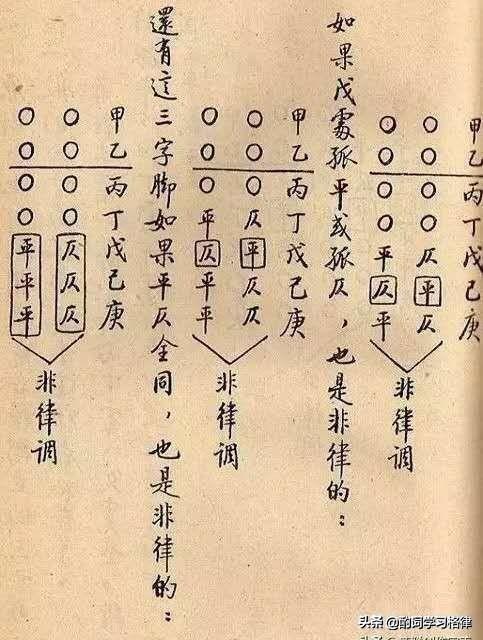 甲乙丙丁戊己庚
○○○○仄平仄
○○○○平仄平
非律调
如果戊處孤平或孤仄，也是非律的：
甲乙丙丁戊己庚
○○○仄平仄仄
○○○平仄平平
非律调
還有這三字脚如果平仄全同，也是非律的：
甲乙丙丁戊己庚
○○○○仄仄仄
○○○○平平平
非律调
头条 @酌词学习格律